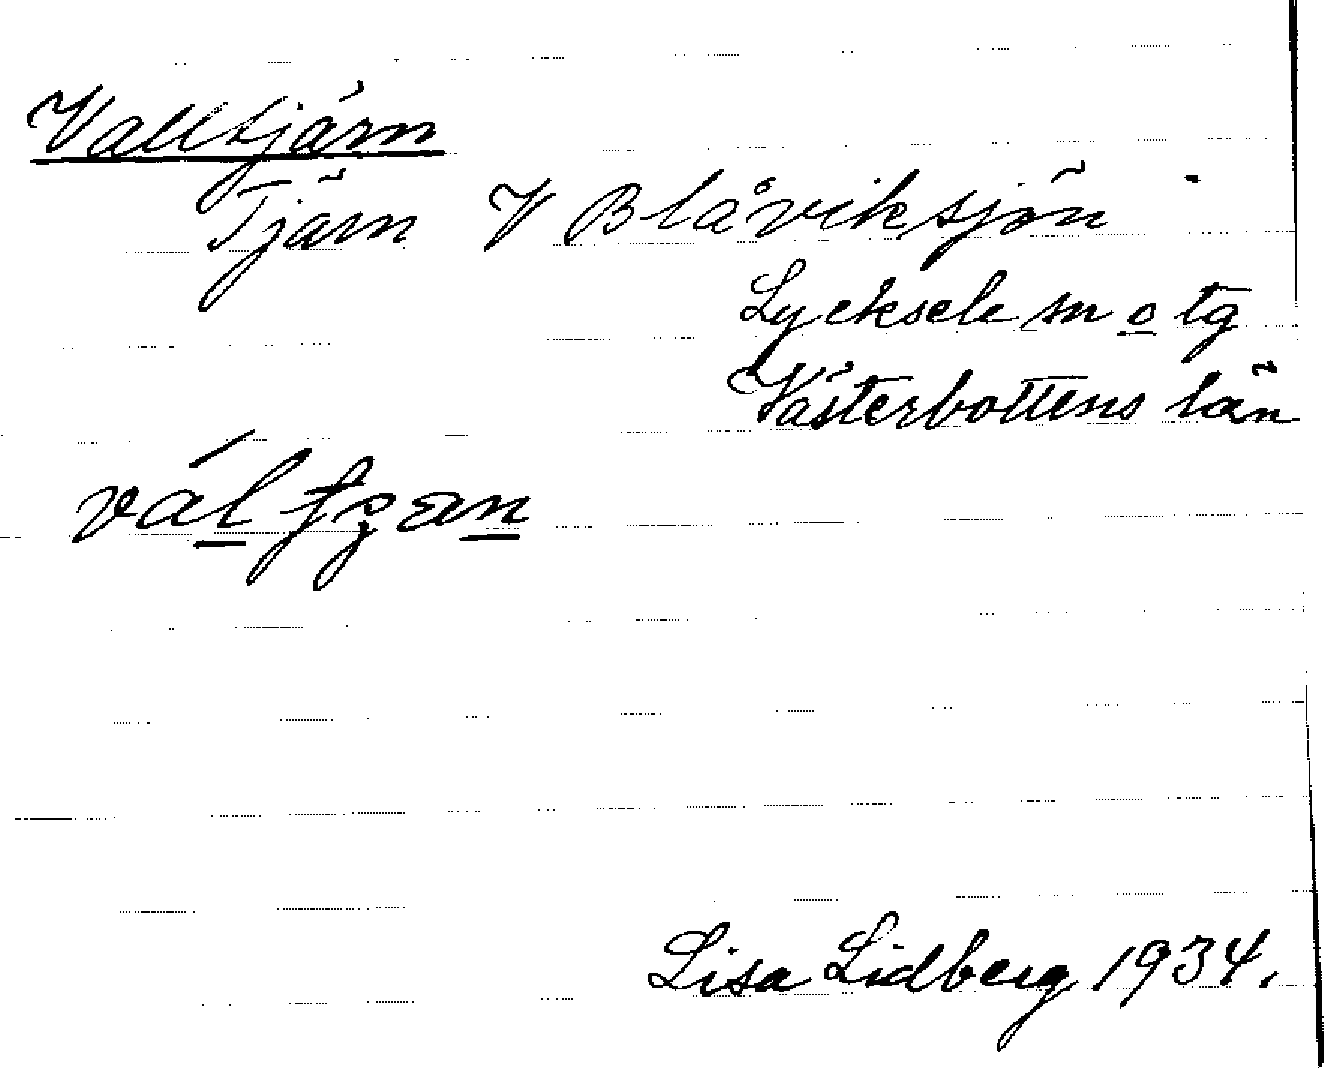 Valltjärn
Tjärn V Blåviksjön
Lycksele sn o tg
Västerbottens län
Lisa Lidberg 1934.